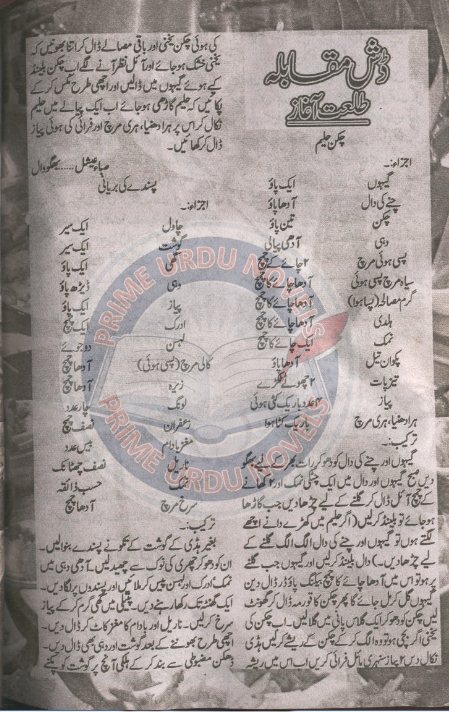 ڈش مقابلہ
طلعت آغاز
چکن حلیم
اجزاء:۔
گیہوں ایک پاؤ
چنے کی دال آدھا پاؤ
چکن تین پاؤ
دہی آدھی پیالی
پسی ہوئی مرچ ۲ چائے کے چمچ
سیاہ مرچ پسی ہوئی آدھا چائے کا چمچ
گرم مصالحہ (پسا ہوا) آدھا چائے کا چمچ
ہلدی آدھا چائے کا چمچ
نمک ایک چائے کا چمچ
پکوان تیل آدھا پاؤ
تیز پات ۲ چھوٹے ٹکڑے
پیاز ۴ عدد باریک کٹی ہوئی
ہرا دھنیا، ہری مرچ باریک کٹا ہوا
ترکیب:۔
گیہوں اور چنے کی دال کو دھو کر رات بھر کے لیے بھگو
دیں صبح گیہوں اور دال میں ایک چمچی نمک اور ۲ کھانے
کے چمچ آئل ڈال کر گلنے کے لیے چڑھا دیں جب گاڑھا
ہو جائے تو بلینڈ کر لیں (اگر حلیم میں کھڑے دانے اچھے
لگتے ہوں تو گیہوں اور چنے کی دال الگ الگ گلنے کے
لیے چڑھا دیں۔) دال بلینڈ کر لیں اور گیہوں جب گلنے
پر ہو تو اس میں آدھا چائے کا چمچ بیکنگ پاؤڈر ڈال دیں
گیہوں گل کر مل جائے گا پھر چکن کا قورمہ ڈال کر گھونٹ
لیں چکن کو دھو کر ایک گلاس پانی میں ابالیں۔ اب چکن کی
یخنی اگر بچی ہو تو وہ الگ کر کے چکن کے ریشے کر لیں ہڈی
نکال دیں ۲ پیاز سنہری مائل فرائی کریں اب اس میں ریشہ
کی ہوئی چکن یخنی اور باقی مصالحے ڈال کر اتنا بھونیں کہ
یخنی خشک ہو جائے اور آئل نظر آنے لگے اب چکن بلینڈ
کیے ہوئے گیہوں میں ڈالیں اور اچھی طرح مکس کر کے
پکائیں کہ حلیم گاڑھی ہو جائے اب ایک پیالے میں حلیم
نکال کر اس پر ہرا دھنیا، ہری مرچ اور فرائی کی ہوئی پیاز
ڈال کر کھائیں۔
صباء عیشل...... بھگووال
پسندے کی بریانی
اجزاء:۔
چاول ایک سیر
گوشت ایک سیر
گھی ایک پاؤ
دہی ڈیڑھ پاؤ
پیاز ایک پاؤ
ادرک ایک چمچ
لہسن دو جوئے
کالی مرچ (پسی ہوئی) آدھا چمچ
زیرہ آدھا چمچ
لونگ چار عدد
زعفران نصف چمچ
مغز بادام بیس عدد
ناریل نصف چھٹانک
نمک حسب ذائقہ
سرخ مرچ آدھا چمچ
ترکیب:۔
بغیر ہڈی کے گوشت کے تکونے پسندے بنوا لیں۔
ان کو دھو کر چھری کی نوک سے چھید لیں۔ آدھی دہی میں
نمک ادرک اور لہسن پیس کر ملائیں اور پسندوں پر لگا دیں۔
ایک گھنٹہ تک رکھا رہنے دیں۔ پتیلی میں گھی گرم کر کے پیاز
سرخ کر لیں۔ ناریل اور بادام کا مغز کاٹ کر ڈال دیں۔
اچھی طرح بھوننے کے بعد گوشت اور دہی بھی ڈال دیں۔
ڈھکن مضبوطی سے بند کر کے ہلکی آنچ پر گوشت کو پکنے
PRIME URDU NOVELS
PRIME URDU NOVELS